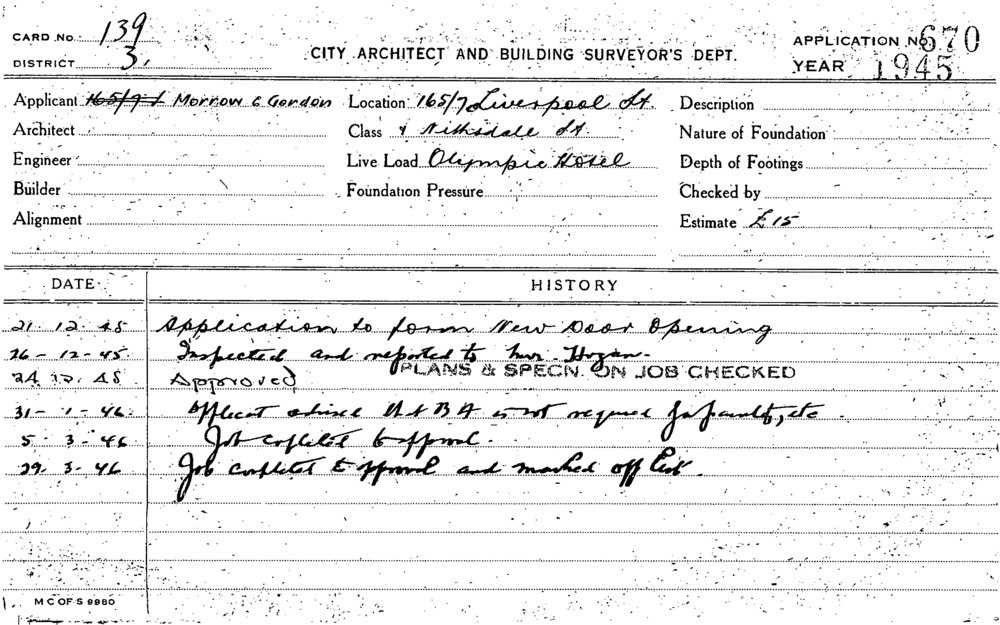 CARD No. 139
DISTRICT 3.
CITY ARCHITECT AND BUILDING SURVEYOR'S DEPT.
APPLICATION No. 670
YEAR 1945
Applicant 165/7 L Morrow & Gordon Location 165/7 Liverpool St. Description
Architect Class & Nithsdale St. Nature of Foundation
Engineer Live Load Olympic Hotel Depth of Footings
Builder Foundation Pressure Checked by
Alignment Estimate £15
DATE HISTORY
21. 12. 45 Application to form New Door Opening
26-12-45. Inspected and reported to Mr. Hogan.
PLANS & SPECN. ON JOB CHECKED
24. 12. 45 Approved
31-1-46. Applicat advised is not required etc
5. 3. 46 Job to approval.
29. 3. 46 Job to approval and marked off list.
M C OF S 9960